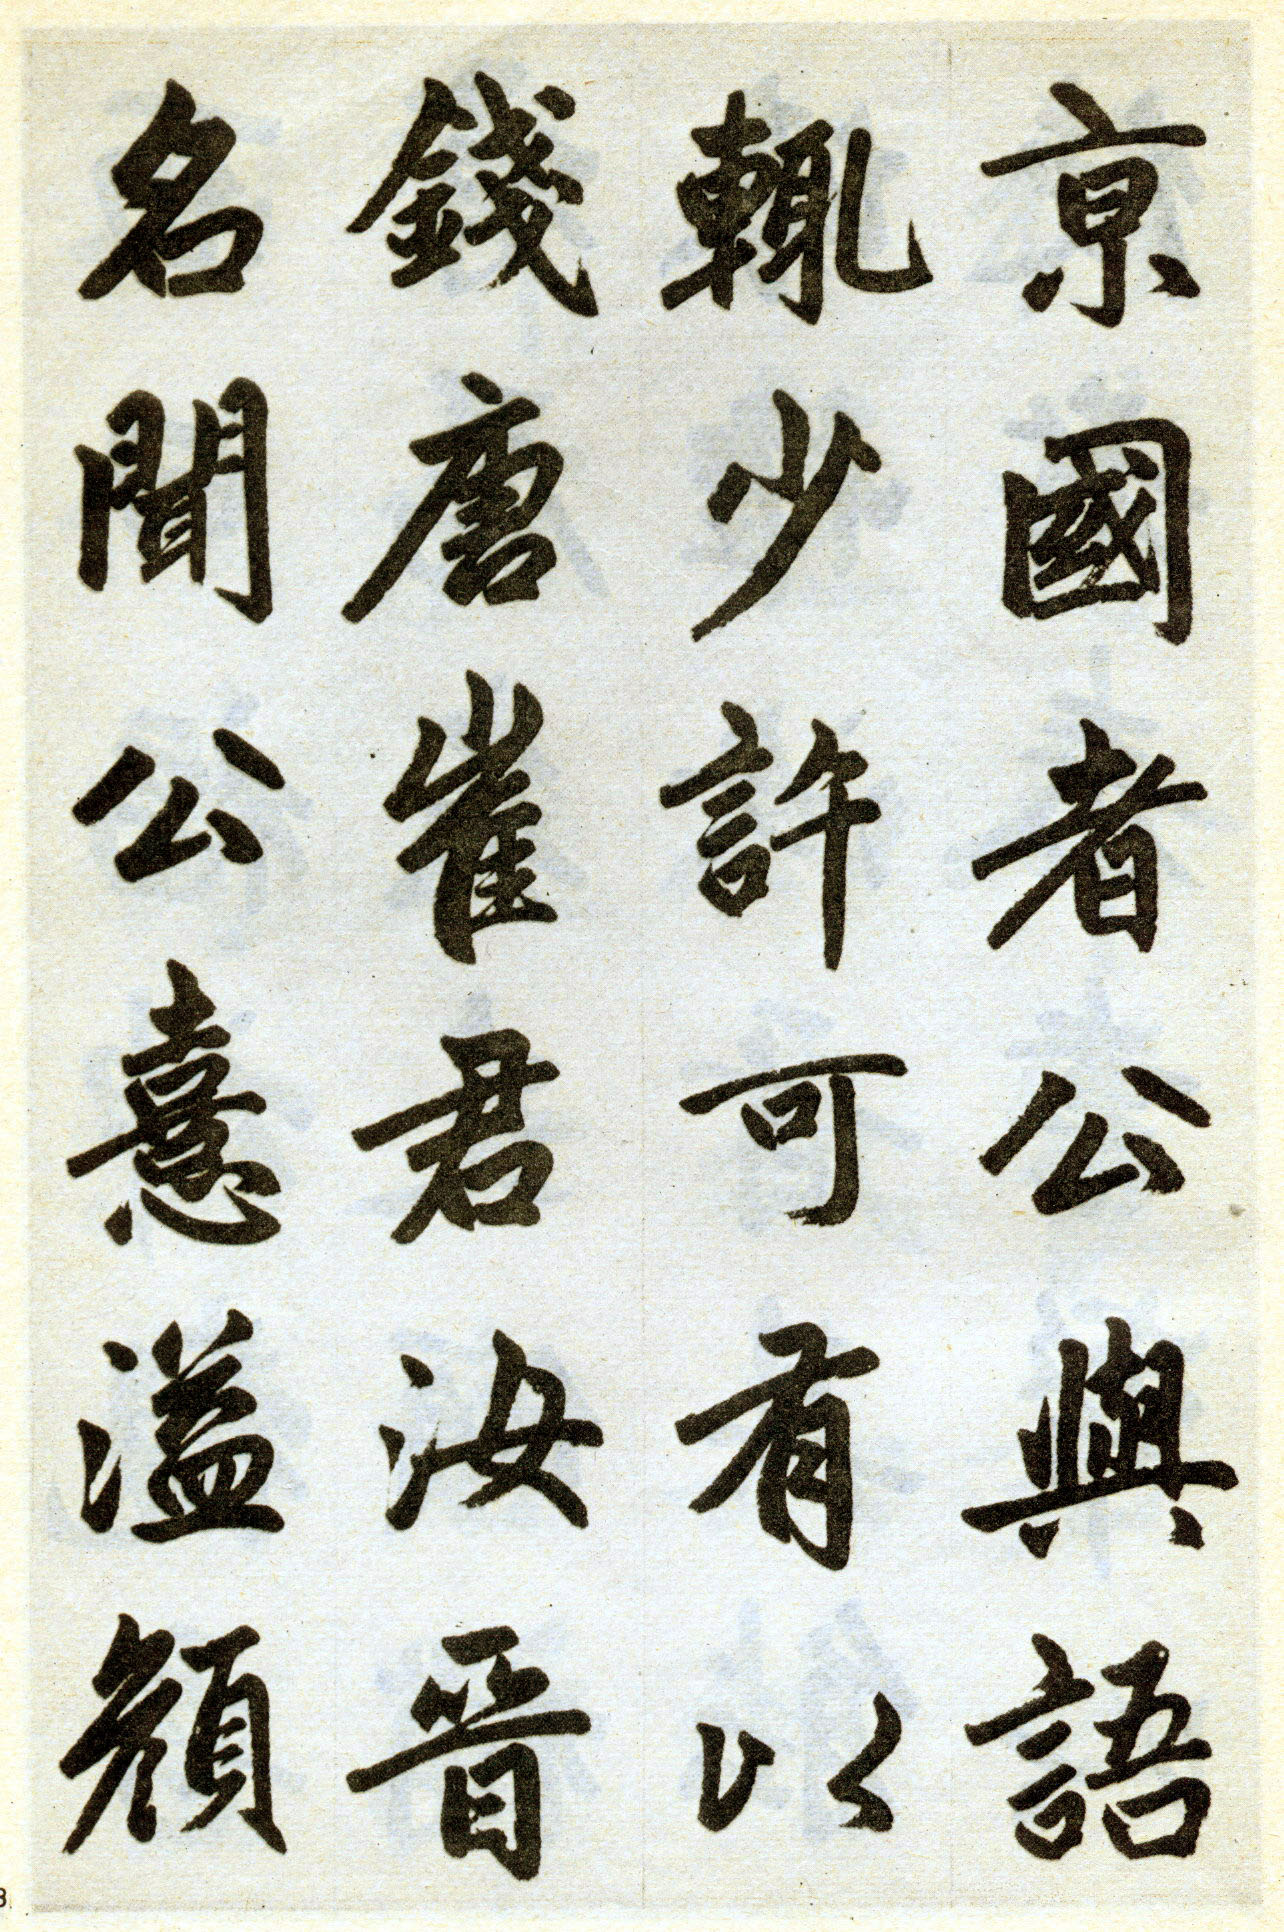 京國者公與語
輒少許可有以
錢唐崔君汝晉
名聞公意溢顏
3